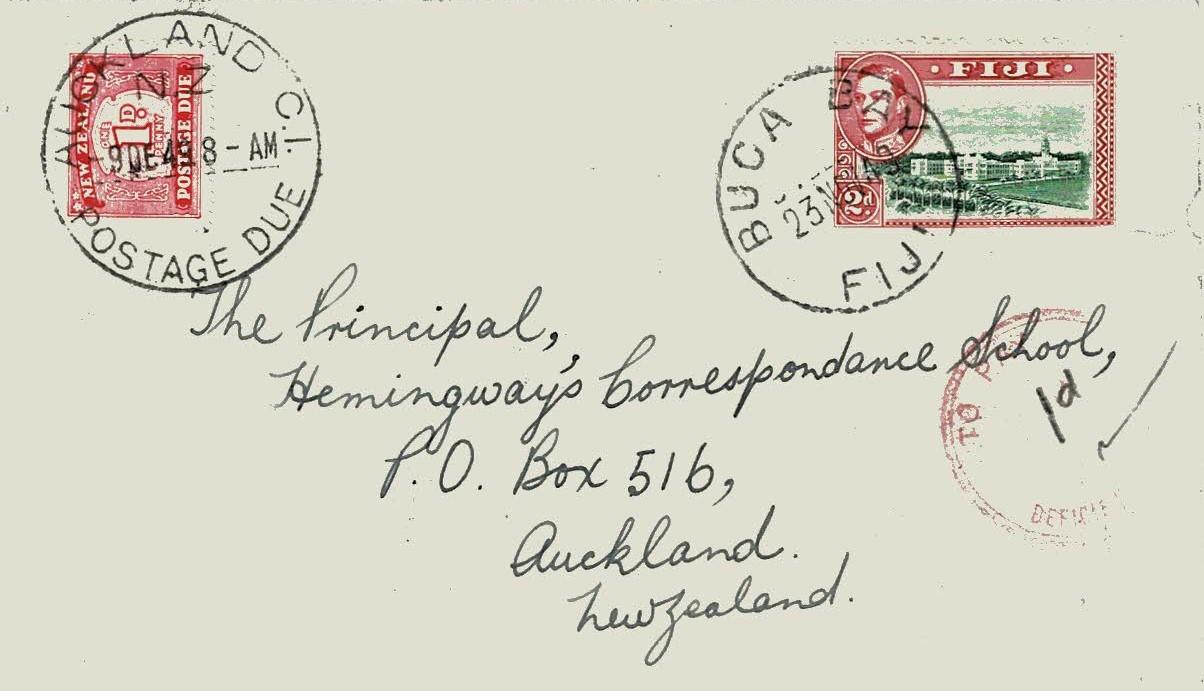 AUCKLAND C.I.
N.Z.
8 - AM
POSTAGE DUE
NEW ZEALAND
1D.
ONE PENNY
POSTAGE DUE
BUCA BAY
FIJI
FIJI
2d
The Principal,
Hemingway's Correspondance School,
P.O. Box 516,
Auckland.
New Zealand.
TO
1d